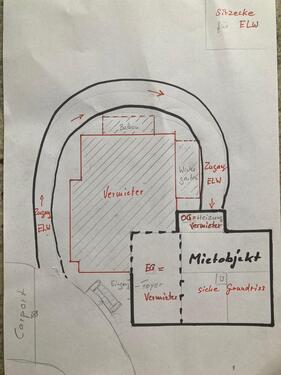 Sitzecke
für ELW
Balkon
Winter
garten
Zugang
ELW
Vermieter
Zugang
ELW
OG=Heizung
Vermieter
Mietobjekt
EG=
Vermieter
siehe Grundriss
Eingang
Foyer
Carport